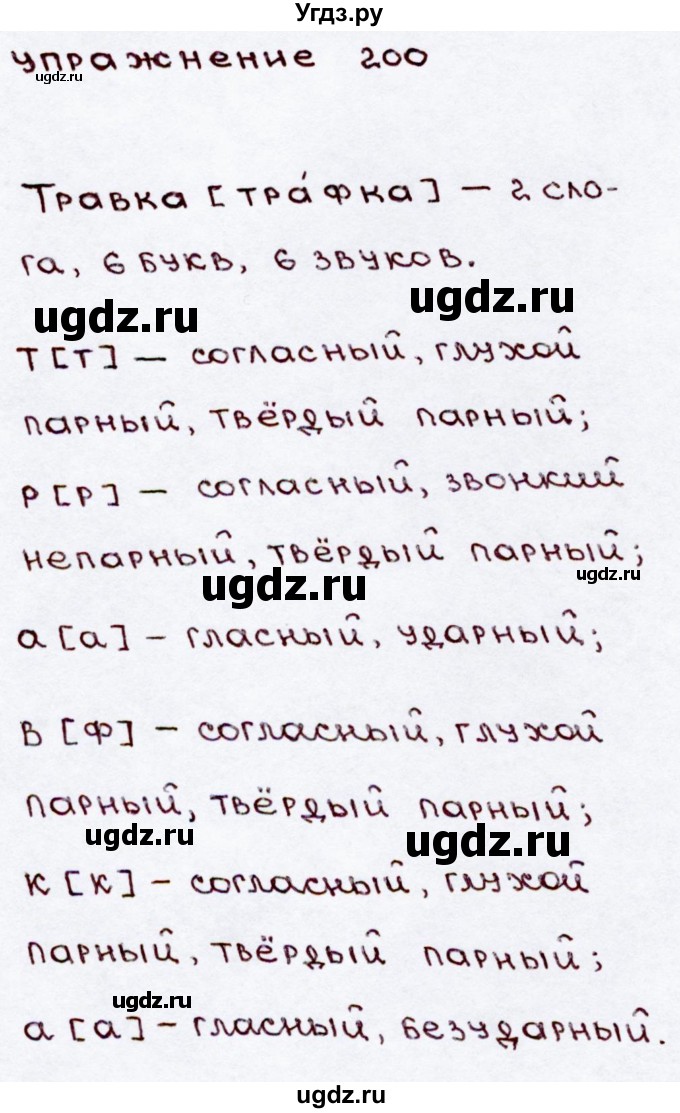 Угдз.ру
упражнение 200
ugdz.ru
Травка [тра́фка] – 2 сло-
га, 6 букв, 6 звуков.
ugdz.ru
ugdz.ru
т [т] – согласный, глухой
парный, твёрдый парный;
р [р] – согласный, звонкий
непарный, твёрдый парный;
ugdz.ru
ugdz.ru
а [а] – гласный, ударный;
в [ф] – согласный, глухой
парный, твёрдый парный;
ugdz.ru
ugdz.ru
к [к] – согласный, глухой
парный, твёрдый парный;
ugdz.ru
а [а] – гласный, безударный.
ugdz.ru